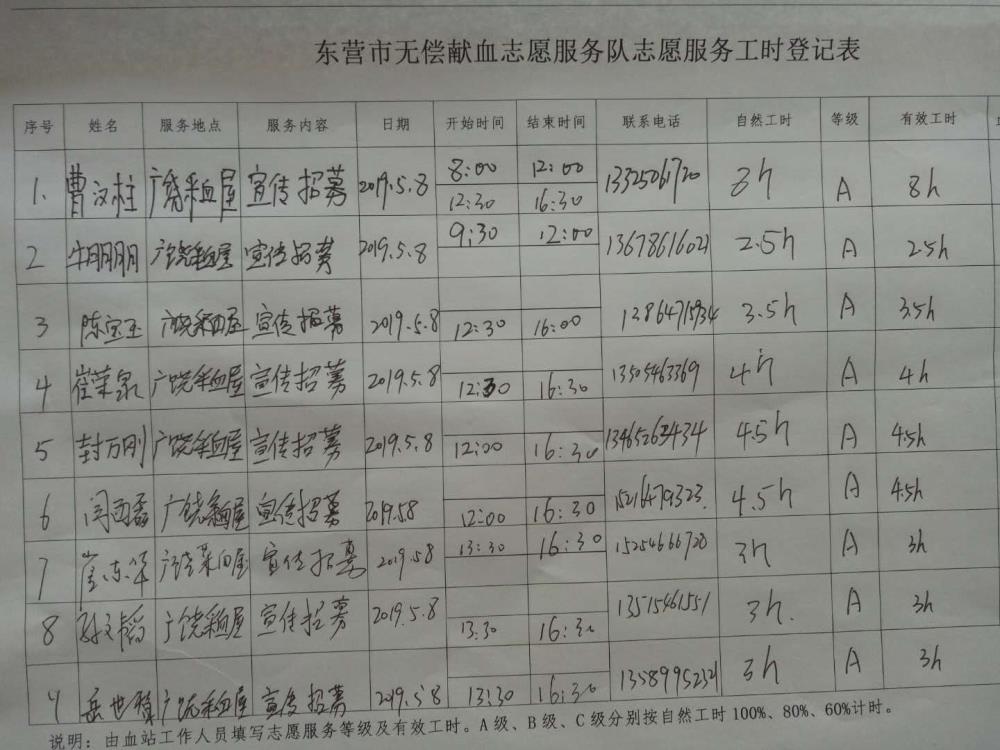 东营市无偿献血志愿服务队志愿服务工时登记表
序号 姓名 服务地点 服务内容 日期 开始时间 结束时间 联系电话 自然工时 等级 有效工时
8:00 12:00
1. 曹汉柱 广饶采血屋 宣传招募 2019.5.8 13325061720 8h A 8h
12:30 16:30
9:30 12:00
2 牛明明 广饶采血屋 宣传招募 2019.5.8 13678616021 2.5h A 2.5h
3 陈宝玉 广饶采血屋 宣传招募 2019.5.8 12:30 16:00 13864715934 3.5h A 3.5h
4 崔荣泉 广饶采血屋 宣传招募 2019.5.8 12:30 16:30 13505463369 4h A 4h
5 封万刚 广饶采血屋 宣传招募 2019.5.8 12:00 16:30 4.5h A 4.5h
6 闫西磊 广饶采血屋 宣传招募 2019.5.8 12:00 16:30 15216479323 4.5h A 4.5h
7 崔东华 广饶采血屋 宣传招募 2019.5.8 13:30 16:30 15254666728 3h A 3h
8 广饶采血屋 宣传招募 2019.5.8 13:30 16:30 13515461551 3h. A 3h
岳世 广饶采血屋 宣传招募 2019.5.8 13:30 16:30 13589995232 3h A 3h
说明：由血站工作人员填写志愿服务等级及有效工时。A级、B级、C级分别按自然工时100%、80%、60%计时。